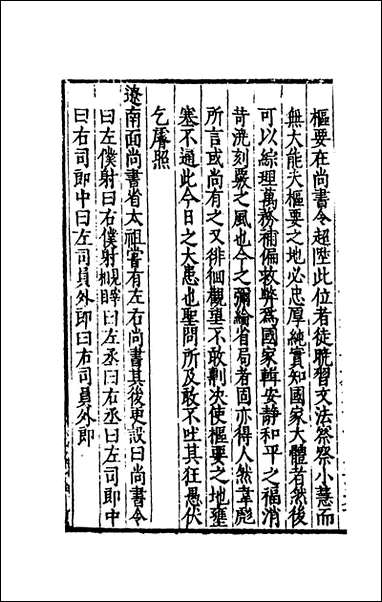 樞要在尚書今超陞此位者徒既習文法祭祭小慧而
無大能夫樞要之地必忠厚純實知國家大體者然後
可以綜理萬務補偏救弊爲國家輯安靜和平之福消
苛洗刻覈之風也今之彌綸省局者固亦得人然韋彪
所言或尚有之又徘徊觀望不敢剸決使樞要之地壅
塞不通此今日之大患也聖問所及敢不吐其狂愚伏
乞孱照
遼南面尚書省太祖嘗有左右尚書其後更設曰尚書令
曰左僕射曰右僕射覘睟曰左丞曰右丞曰左司郎中
曰右司郎中曰左司員外郎曰右司員外郎